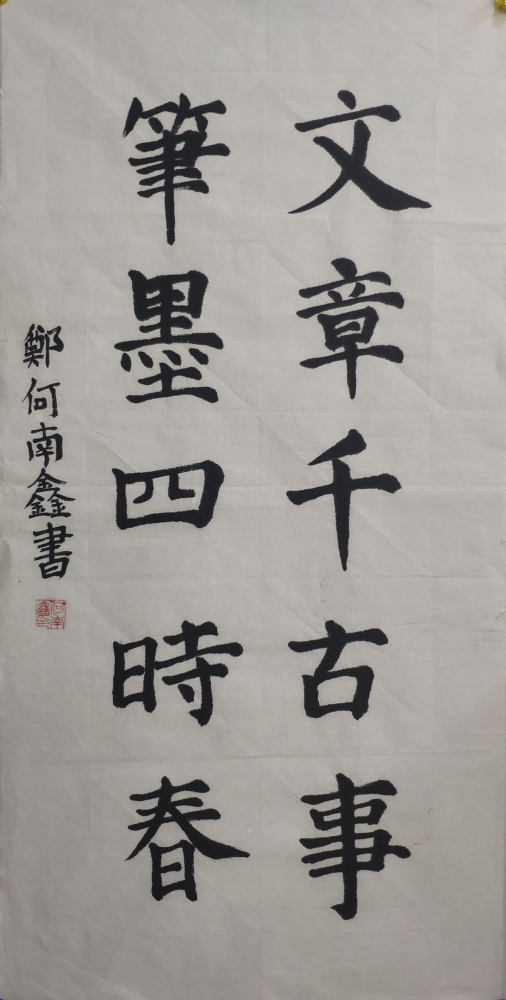 文章千古事
筆墨四時春
鄭何南鑫書
何南鑫印